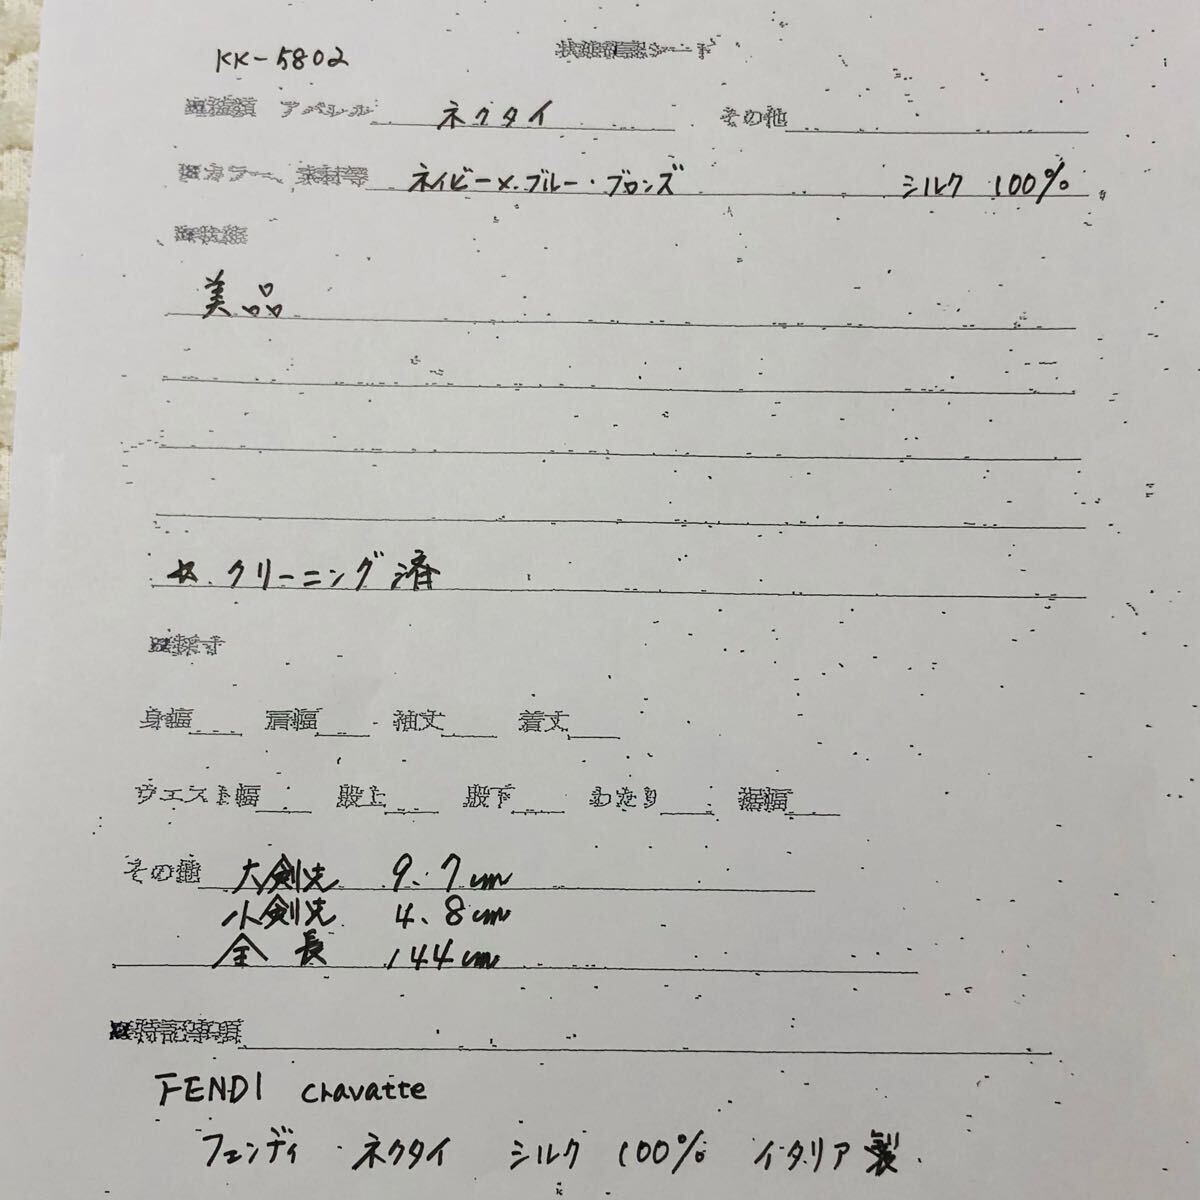 KK-5802
状態確認シート
アパレル ネクタイ その他
カラー、素材等 ネイビー×ブルー・ブロンズ シルク 100%
■状態
美品
クリーニング済
■採寸
身幅 肩幅 袖丈 着丈
ウエスト幅 股上 股下 わたり 裾幅
その他 大剣先 9.7cm
小剣先 4.8cm
全長 144cm
■特記事項
FENDI cravatte
フェンディ ネクタイ シルク 100% イタリア製